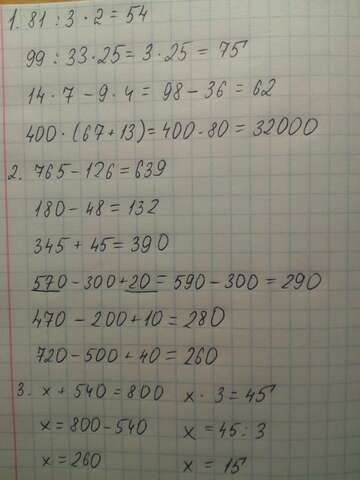 1. 81 : 3 · 2 = 54
99 : 33 · 25 = 3 · 25 = 75
14 · 7 - 9 · 4 = 98 - 36 = 62
400 · (67 + 13) = 400 · 80 = 32000
2. 765 - 126 = 639
180 - 48 = 132
345 + 45 = 390
570 - 300 + 20 = 590 - 300 = 290
470 - 200 + 10 = 280
720 - 500 + 40 = 260
3. x + 540 = 800 x · 3 = 45
x = 800 - 540 x = 45 : 3
x = 260 x = 15